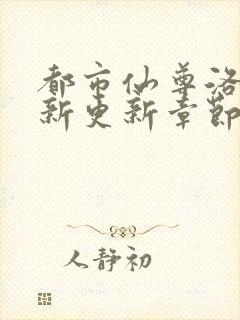 都市仙尊洛
新更新章節
人静初